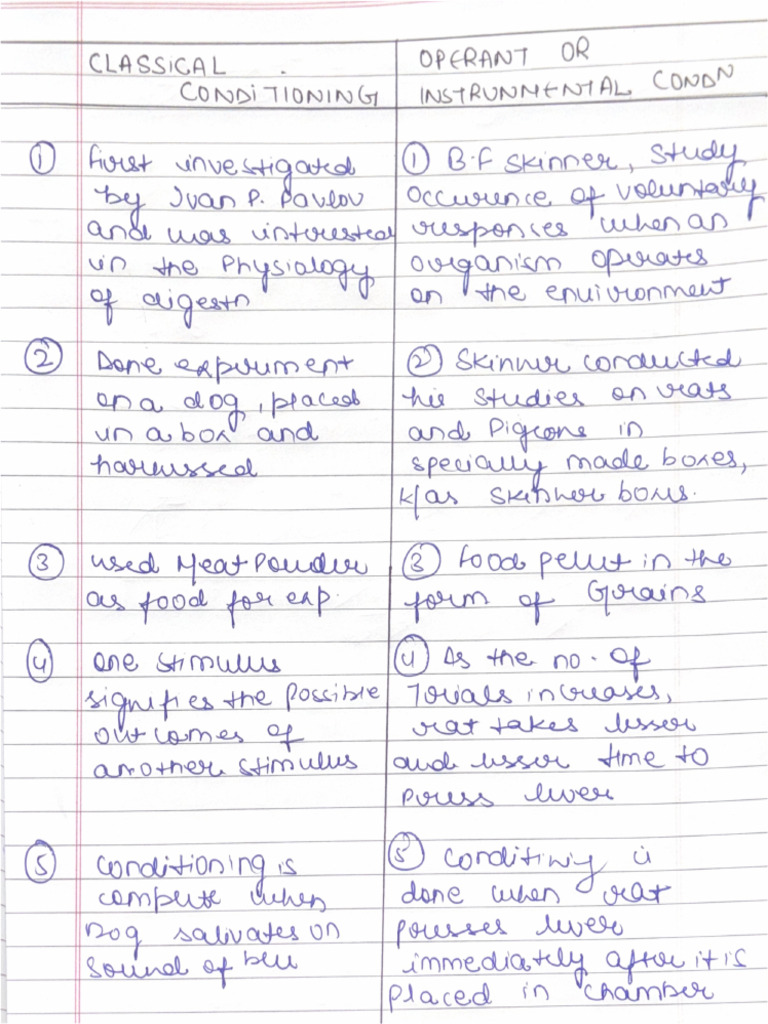 CLASSICAL
CONDITIONING
① first investigated
by Ivan P. Pavlov
and was interested
in the Physiology
of digestn
② Done experiment
on a dog, placed
in a box and
harnessed
③ used Meat Powder
as food for exp.
④ one stimulus
signifies the possible
outcomes of
another stimulus
⑤ conditioning is
complete when
Dog salivates on
sound of bell
OPERANT OR
INSTRUNMENTAL CONDN
① B.F Skinner, Study
occurence of voluntary
responses when an
organism operates
on the enuironment
② Skinner conducted
his studies on rats
and Pigeons in
specially made boxes,
k/as Skinner boxes.
③ Food pellet in the
form of Grains
④ As the no. of
Trials increases,
rat takes lesser
and lesser time to
press lever
⑤ conditining is
done when rat
presses lever
immediately after it is
placed in chamber